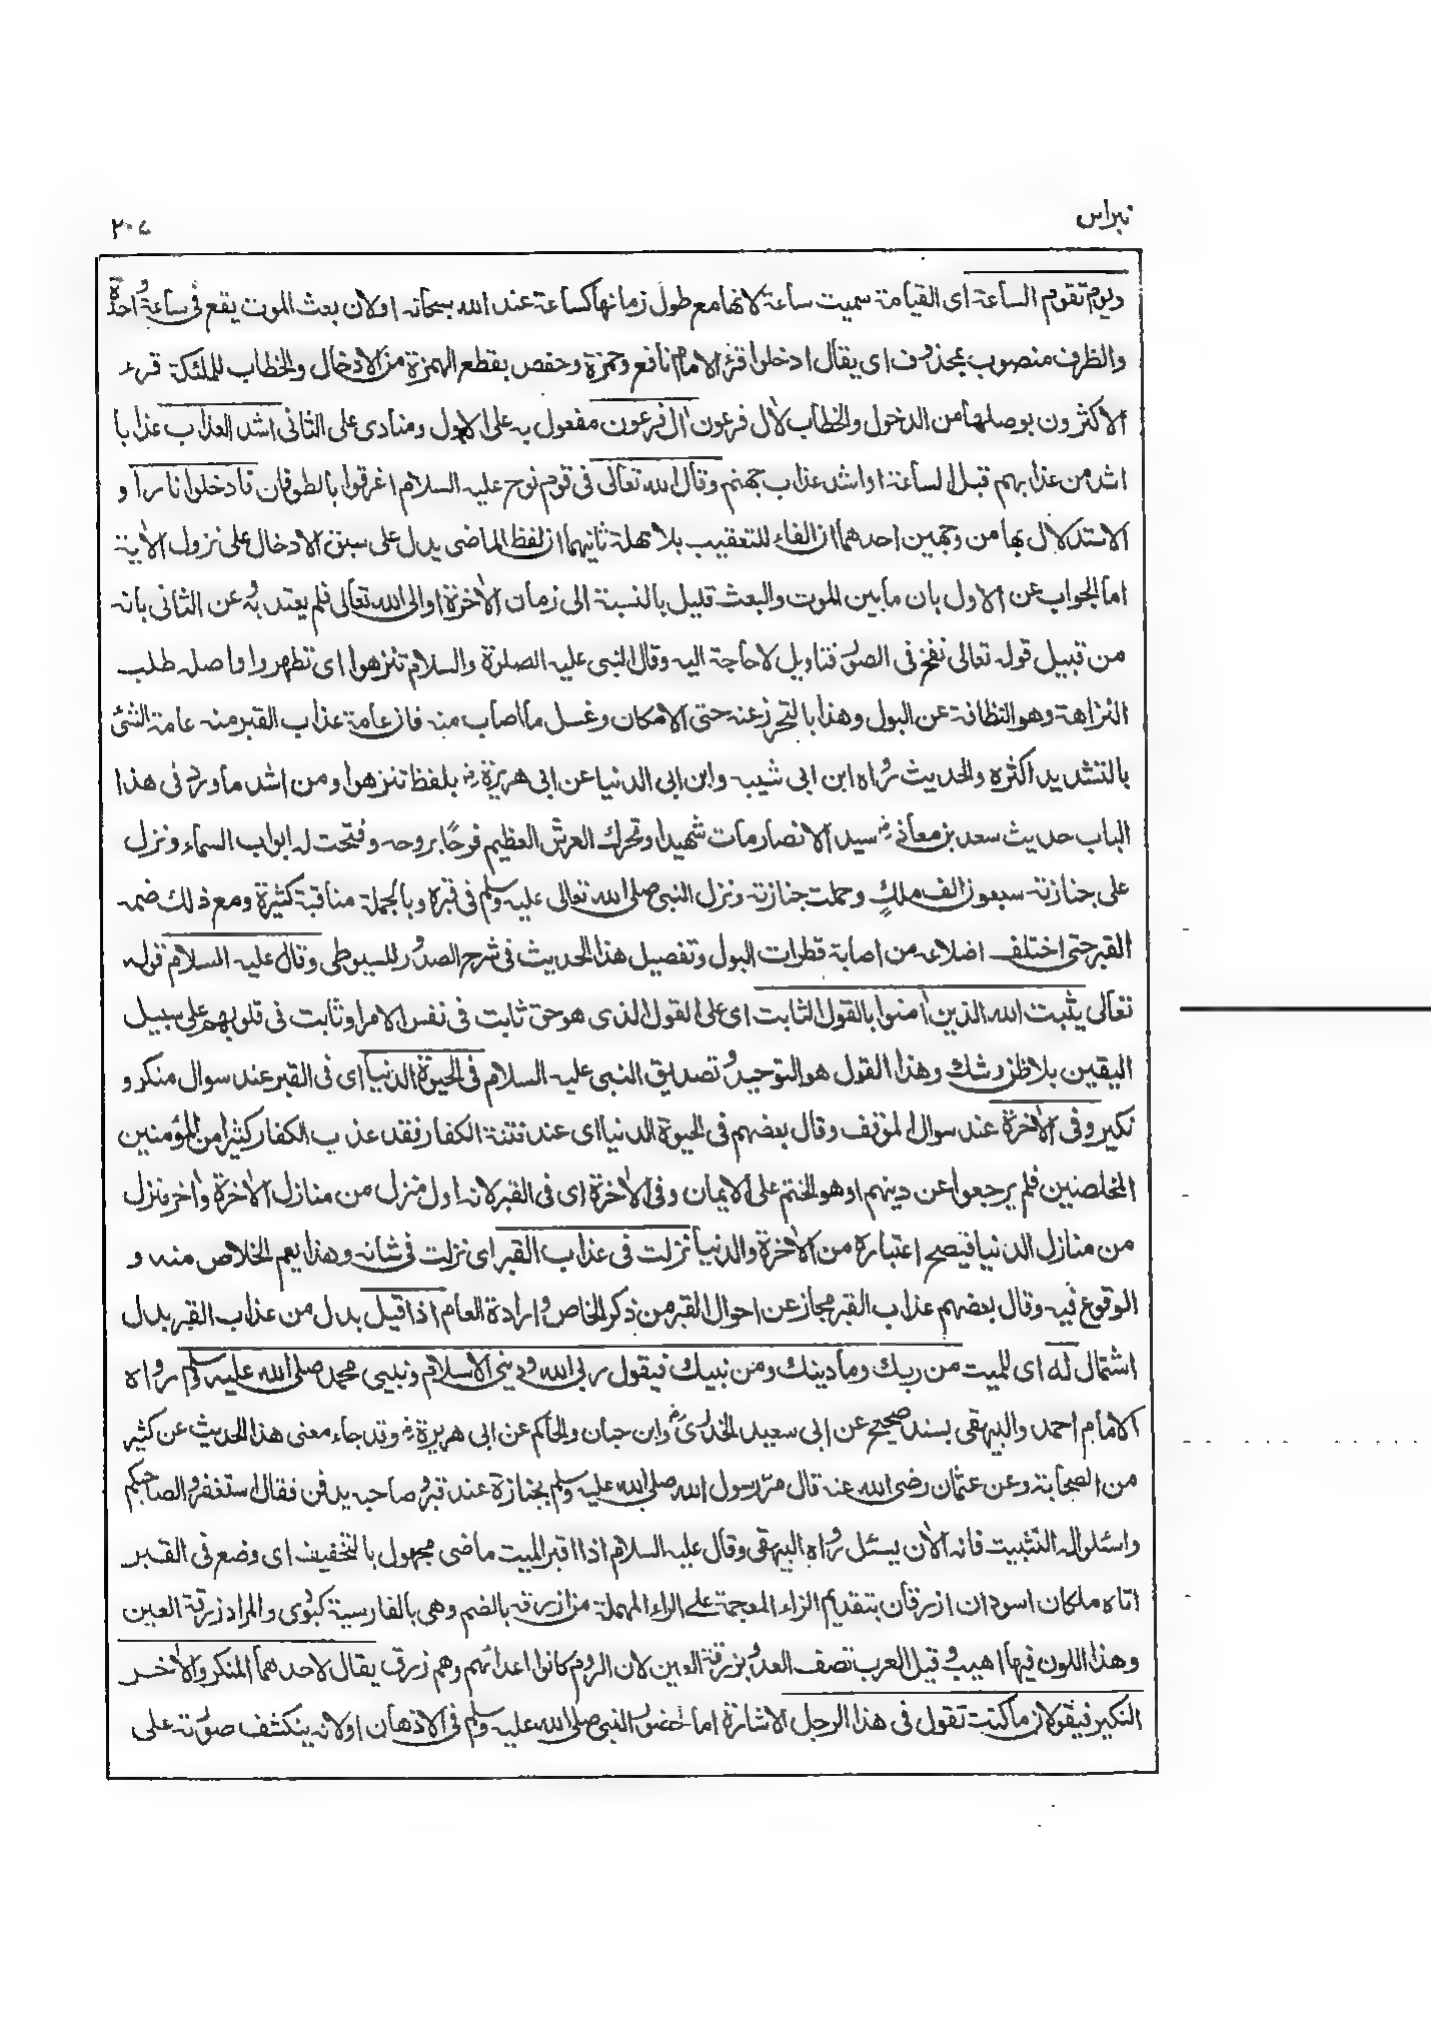 نبراس
٢٠٧
ويوم تقوم الساعة اى القيامة سميت ساعة لانها مع طول زمانها كساعة عند الله سبحانه اولان بعث الموت يقع فى ساعة واحدة
والظرف منصوب بمحذوف اى يقال ادخلوا قرء الامام نافع وحمزة وحفص بقطع الهمزة من الادخال والخطاب للملئكة قرء
الاكثرون بوصلها من الدخول والخطاب لأل فرعون أل فرعون مفعول به على الاول ومنادى على الثانى اشد العذاب عذابا
اشد من عذابهم قبل الساعة او اشد عذاب جهنم وقال الله تعالى فى قوم نوح عليه السلام اغرقوا بالطوفان فادخلوا نارا و
الاستدلال بها من وجهين احدهما ان الفاء للتعقيب بلا مهلة ثانيهما ان لفظ الماضى يدل على سبق الادخال على نزول الأية
اما الجواب عن الاول بان ما بين الموت والبعث قليل بالنسبة الى زمان الأخرة او الى الله تعالى فلم يعتد به وعن الثانى بانه
من قبيل قوله تعالى نفخ فى الصور فتاويل لا حاجة اليه وقال النبى عليه الصلوة والسلام تنزهوا اى تطهروا واصله طلب
النزاهة وهو النظافة عن البول وهذا بالتحرز عنه حتى الامكان وغسل ما اصاب منه فان عامة عذاب القبر منه عامة الشئ
بالتشديد اكثره والحديث رواه ابن ابى شيبه وابن ابى الدنيا عن ابى هريرة رض بلفظ تنزهوا ومن اشد ما ورد فى هذا
الباب حديث سعد بن معاذ رض سيد الانصار مات شهيدا وتحرك العرش العظيم فرحًا بروحه وفتحت له ابواب السماء ونزل
على جنازته سبعون الف ملكٍ وحملت جنازته ونزل النبى صلى الله تعالى عليه وسلم فى قبره وبالجملة مناقبة كثيرة ومع ذلك ضمه
القبر حتى اختلف اضلاعه من اصابة قطرات البول وتفصيل هذا الحديث فى شرح الصدور للسيوطى وقال عليه السلام قوله
تعالى يثبت الله الذين أمنوا بالقول الثابت اى على القول الذى هو حق ثابت فى نفس الامر او ثابت فى قلوبهم على سبيل
اليقين بلا ظن وشك وهذا القول هو التوحيد وتصديق النبى عليه السلام فى الحيوة الدنيا اى فى القبر عند سوال منكر و
نكير وفى الأخرة عند سوال الموقف وقال بعضهم فى الحيوة الدنيا اى عند فتنة الكفار فقد عذب الكفار كثيرا من المؤمنين
المخلصنين فلم يرجعوا عن دينهم او هو الختم على الايمان وفى الأخرة اى فى القبر لانه اول منزل من منازل الأخرة وأخر منزل
من منازل الدنيا فيصح اعتباره من الأخرة والدنيا نزلت فى عذاب القبر اى نزلت فى شانه وهذا يعم الخلاص منه و
الوقوع فيه وقال بعضهم عذاب القبر مجاز عن احوال القبر من ذكر الخاص وارادة العام اذا قيل بدل من عذاب القبر بدل
اشتمال له اى للميت من ربك وما دينك ومن نبيك فيقول ربى الله ودينى الاسلام ونبيى محمد صلى الله عليه وسلم رواه
الامام احمد والبيهقى بسند صحيح عن ابى سعيد الخدرى رض وابن حبان والحاكم عن ابى هريرة رض وقد جاء معنى هذا الحديث عن كثير
من الصحابة وعن عثمان رضى الله عنه قال مرّ رسول الله صلى الله عليه وسلم بجنازة عند قبر وصاحبه يدفن فقال استغفروا لصاحبكم
واسئلوا له التثبيت فانه الأن يسئل رواه البيهقى وقال عليه السلام اذا اقبر الميت ماضى مجهول بالتخفيف اى وضع فى القبر
اتاه ملكان اسودان ازرقان بتقديم الزاء المعجمة على الراء المهملة من الزرقة بالضم وهى بالفارسية كبودى والمراد زرقة العين
وهذا اللون فيها اهيب وقيل العرب تصف العدو بزرقة العين لان الروم كانوا اعدائهم وهم زرق يقال لاحدهما المنكر والأخر
النكير فيقولان ما كنت تقول فى هذا الرجل الاشارة اما لحضور النبى صلى الله عليه وسلم فى الاذهان اولانه ينكشف صورته على